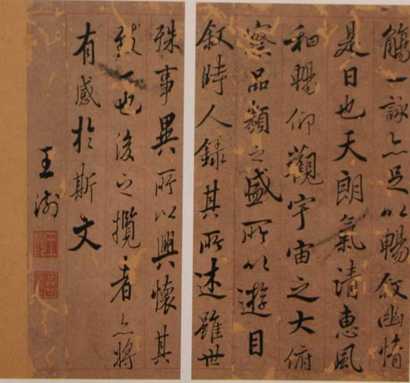 觴一詠亦足以暢叙幽情
是日也天朗氣清惠風
和暢仰觀宇宙之大俯
察品類之盛所以遊目
叙時人錄其所述雖世
殊事異所以興懷其
致一也後之攬者亦將
有感於斯文
王澍